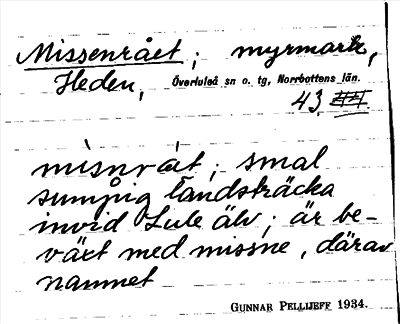 Missenrået; myrmark,
Heden, Överluleå sn o. tg, Norrbottens län.
43
mìsnrå̀t; smal
sumpig landsträcka
invid Lule älv; är be-
växt med missne, därav
namnet
GUNNAR PELLIJEFF 1934.